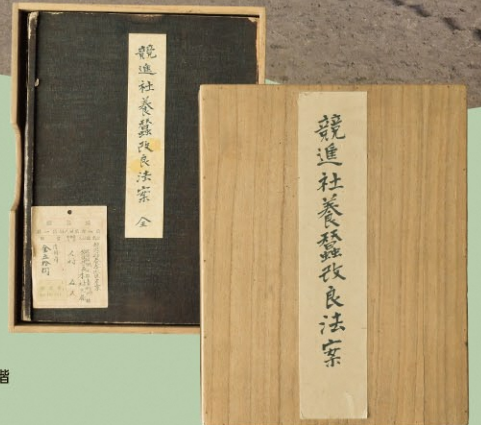 競進社養蚕改良法案 全
金五拾円
競進社養蠶改良法案
階